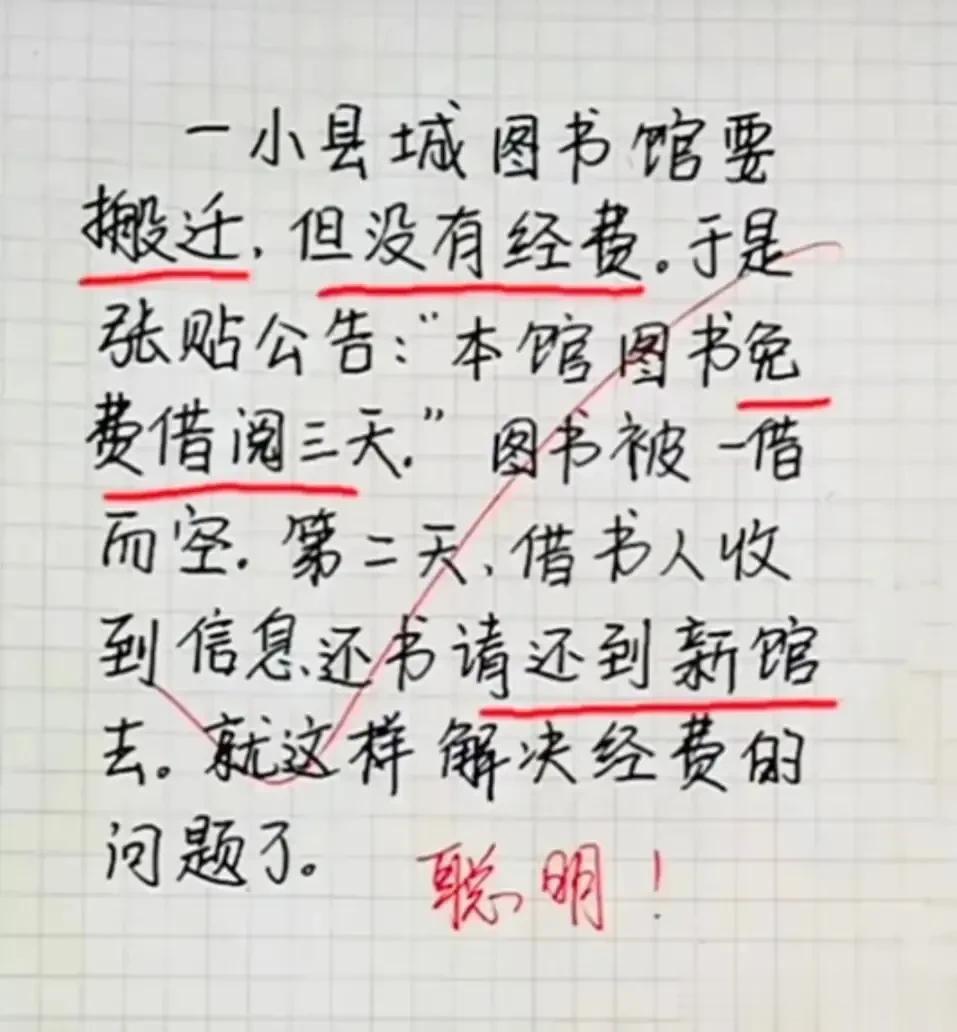 一小县城图书馆要
搬迁，但没有经费。于是
张贴公告：“本馆图书免
费借阅三天.”图书被一借
而空.第二天、借书人收
到信息还书请还到新馆
去。就这样解决经费的
问题了。
聪明！